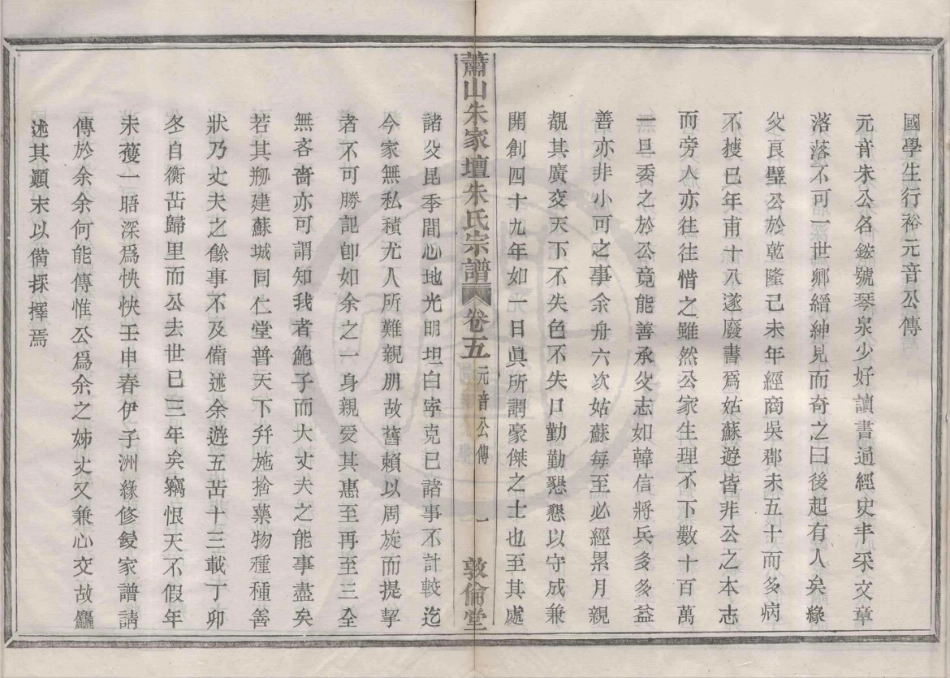 國學生行裕元音公傳
元音朱公名鎡號琴泉少好讀書通經史丰采文章
落落不可一世鄉縉紳見而奇之曰後起有人矣緣
父良璧公於乾隆己未年經商吳郡未五十而多病
不挼已年甫十八遂廢書爲姑蘇遊皆非公之本志
而旁人亦往往惜之雖然公家生理不下數十百萬
一旦委之於公竟能善承父志如韓信將兵多多益
善亦非小可之事余舟六次姑蘇每至必經累月親
覩其廣交天下不失色不失口勤勤懇懇以守成兼
開創四十九年如一日眞所謂豪傑之士也至其處
蕭山朱家壇朱氏宗譜 卷五 元音公傳 一 敦倫堂
諸父昆季間心地光明坦白寧克己諸事不計較迄
今家無私積尤人所難親朋故舊賴以周旋而提挈
者不可勝記卽如余之一身親受其惠至再至三全
無吝嗇亦可謂知我者鮑子而大丈夫之能事盡矣
若其剏建蘇城同仁堂普天下幷施捨藥物種種善
狀乃丈夫之餘事不及備述余遊五嵒十三載丁卯
冬自衡嵒歸里而公去世已三年矣竊恨天不假年
未獲一晤深爲怏怏壬申春伊子洲緣修餕家譜請
傳於余余何能傳惟公爲余之姊丈又兼心交故臚
述其顚末以備採擇焉